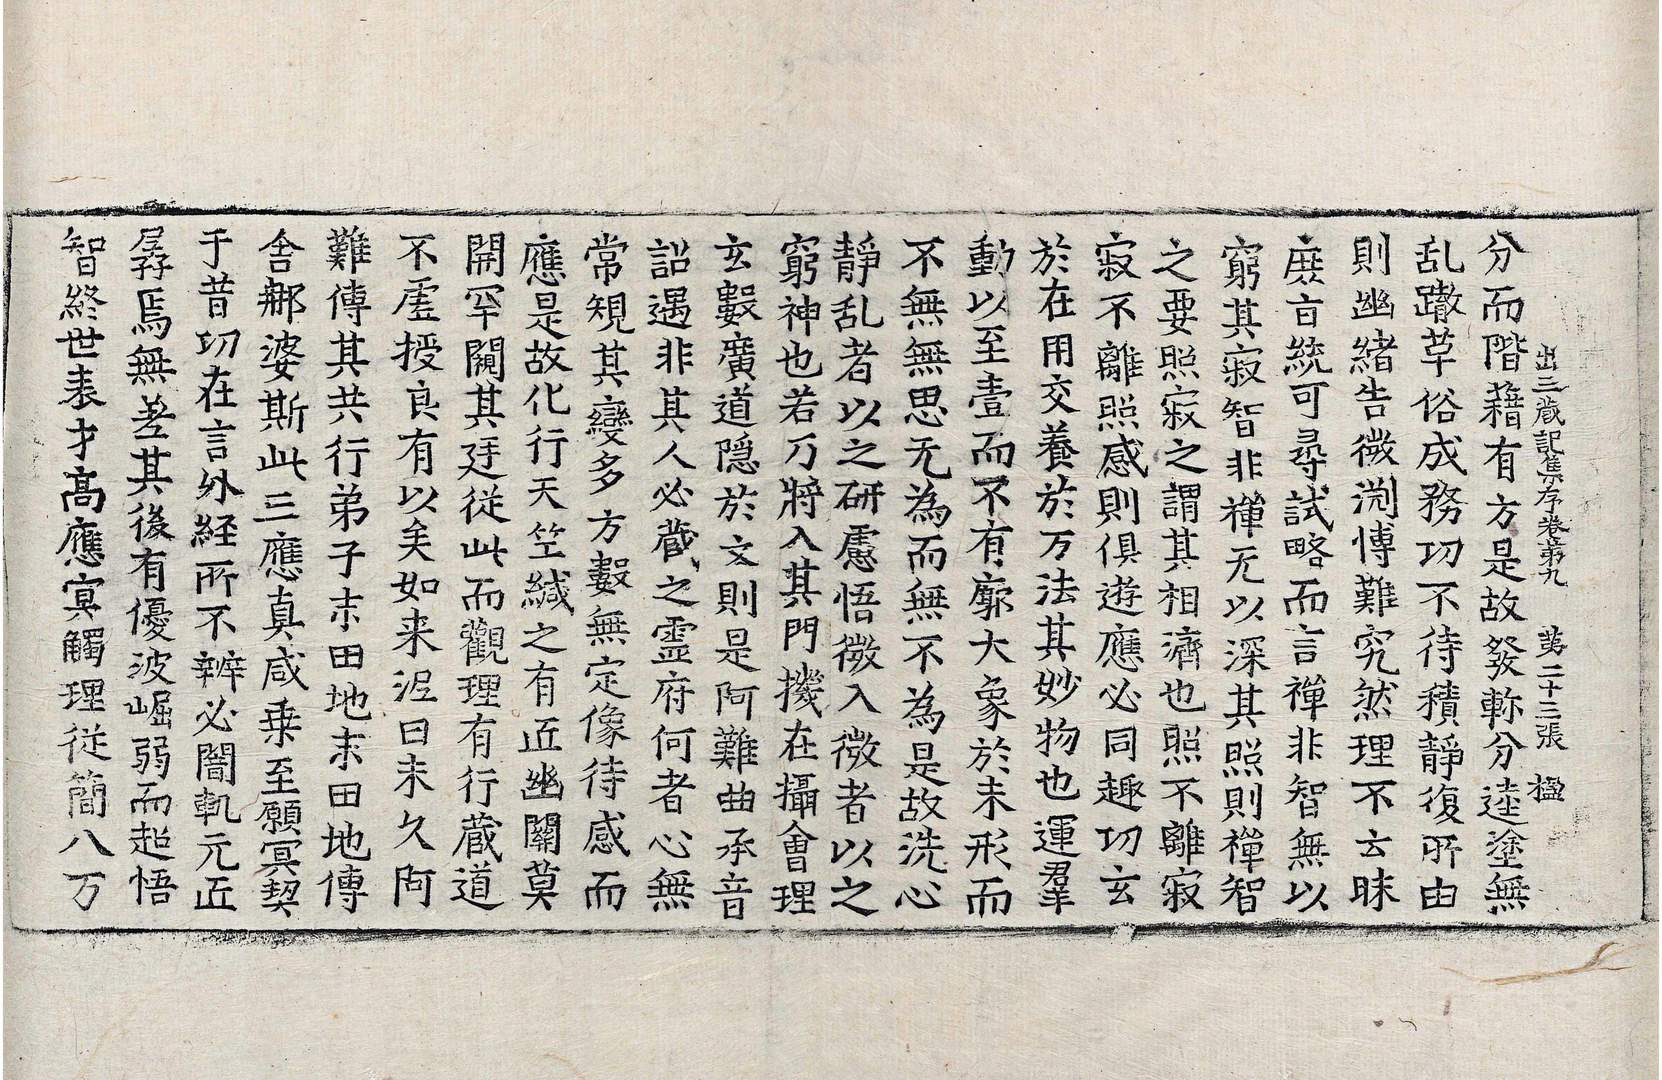 出三蔵記集序卷第九 苐二十三張 楹
分而階藉有方是故發軫分逵塗無
乱蹴草俗成務功不待積靜復所由
則幽緒告微渕愽難究然理不云昧
庶旨統可尋試略而言禪非智無以
窮其寂智非禪无以深其照則禪智
之要照寂之謂其相濟也照不離寂
寂不離照感則俱遊應必同趣功玄
於在用交養於万法其妙物也運羣
動以至壹而不有廓大象於未形而
不無無思无為而無不為是故洗心
靜乱者以之研慮悟微入微者以之
窮神也若乃將入其門機在攝會理
玄數廣道隱於文則是阿難曲承音
詔遇非其人必蔵之霊府何者心無
常規其變多方數無定像待感而
應是故化行天竺緘之有匠幽關莫
開罕闚其廷従此而觀理有行蔵道
不虗授良有以矣如来泥曰未久阿
難傳其共行弟子末田地末田地傳
舎那婆斯此三應真咸乗至願冥契
于昔功在言外経所不辨必闇軌元匠
孱焉無差其後有優波崛弱而超悟
智終世表才髙應冥觸理従簡八万